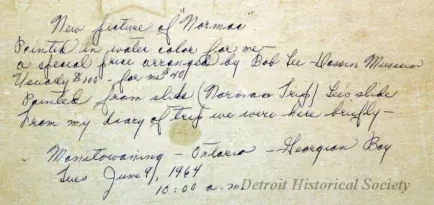 New picture of "Normac"
Painted in water color for me
a special price arranged by Bob Lee - Dossin Museum
Usually $100 - for me $40
Painted from slide (Normac Trip) Lee's slide
From my diary of trip we were here briefly -
Manitowaning - Ontario - Georgian Bay
Tues June 9, 1964
10:00 a.m.
Detroit Historical Society